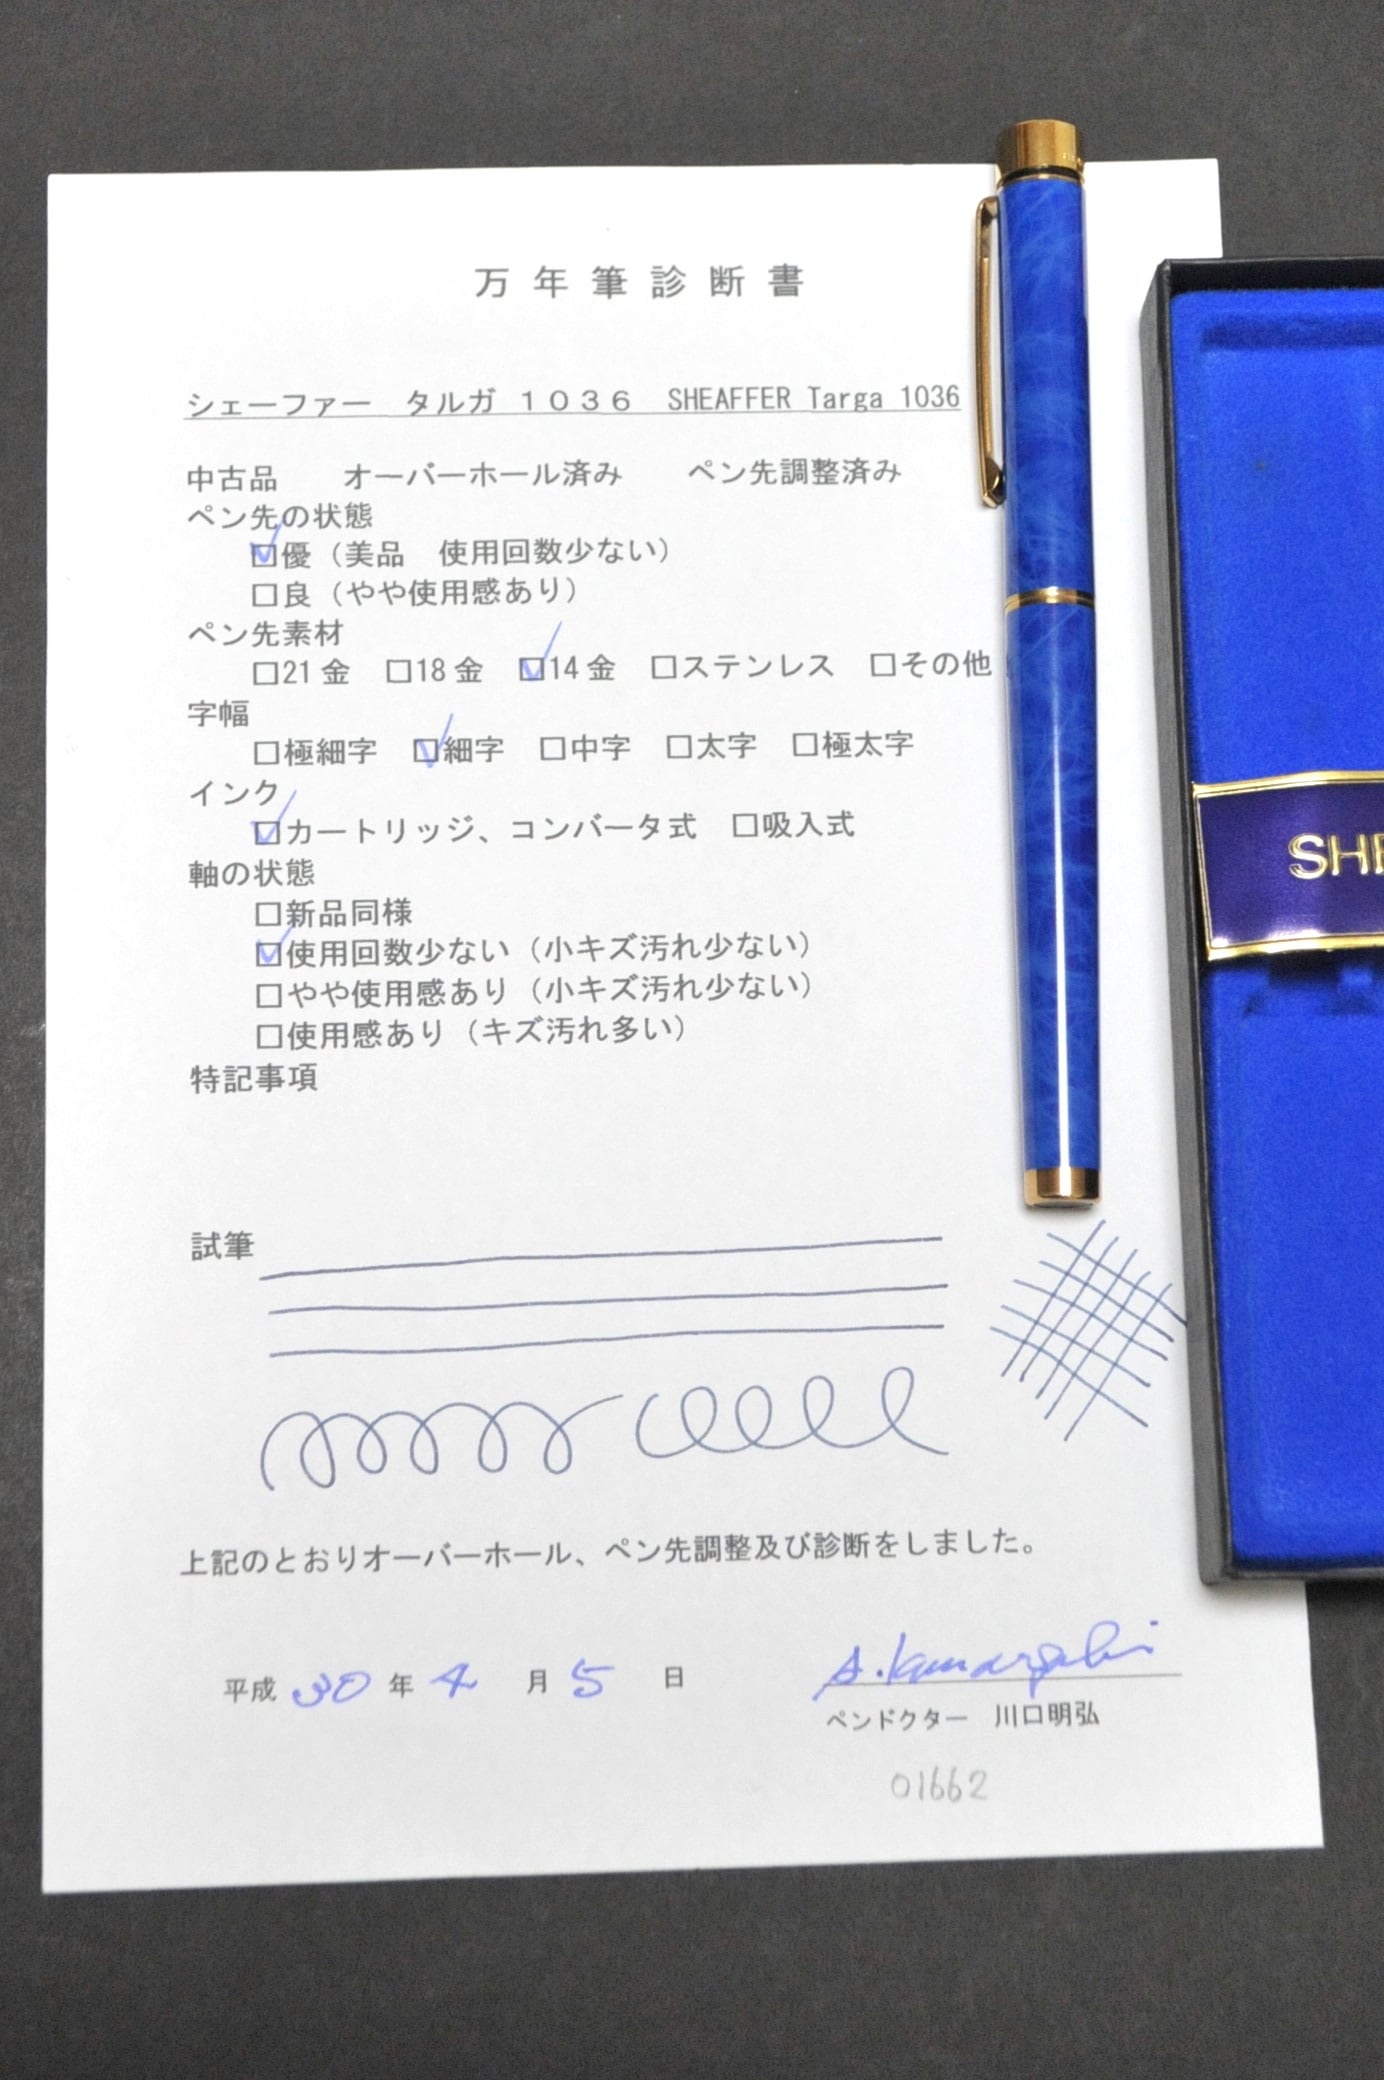 万年筆診断書
シェーファー　タルガ １０３６　SHEAFFER Targa 1036
中古品　　オーバーホール済み　　ペン先調整済み
ペン先の状態
☑優（美品　使用回数少ない）
□良（やや使用感あり）
ペン先素材
□21金　□18金　☑14金　□ステンレス　□その他
字幅
□極細字　☑細字　□中字　□太字　□極太字
インク
☑カートリッジ、コンバータ式　□吸入式
軸の状態
□新品同様
☑使用回数少ない（小キズ汚れ少ない）
□やや使用感あり（小キズ汚れ少ない）
□使用感あり（キズ汚れ多い）
特記事項
試筆
上記のとおりオーバーホール、ペン先調整及び診断をしました。
平成 30 年 4 月 5 日
A. Kawaguchi
ペンドクター　川口明弘
01662
SHE